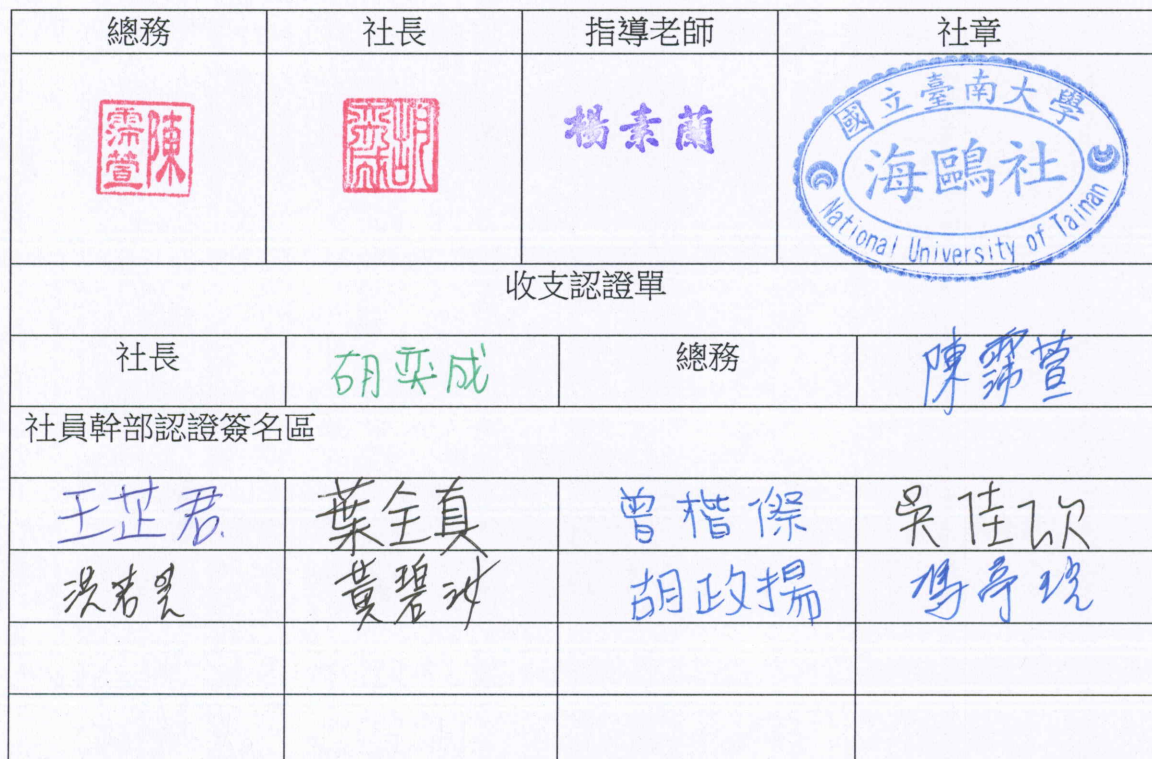 總務 社長 指導老師 社章
陳霈萱 胡奕成 楊素蘭 國立臺南大學
海鷗社
National University of Tainan
收支認證單
社長 胡奕成 總務 陳霈萱
社員幹部認證簽名區
王芷君 葉全真 曾楷傑 吳佳欣
黃碧汝 胡政揚